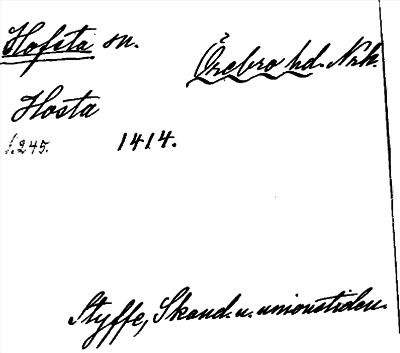 Hofsta sn. Örebro hd. Nrk.
Hosta
s. 245. 1414.
Styffe, Skand. u. unionstiden.